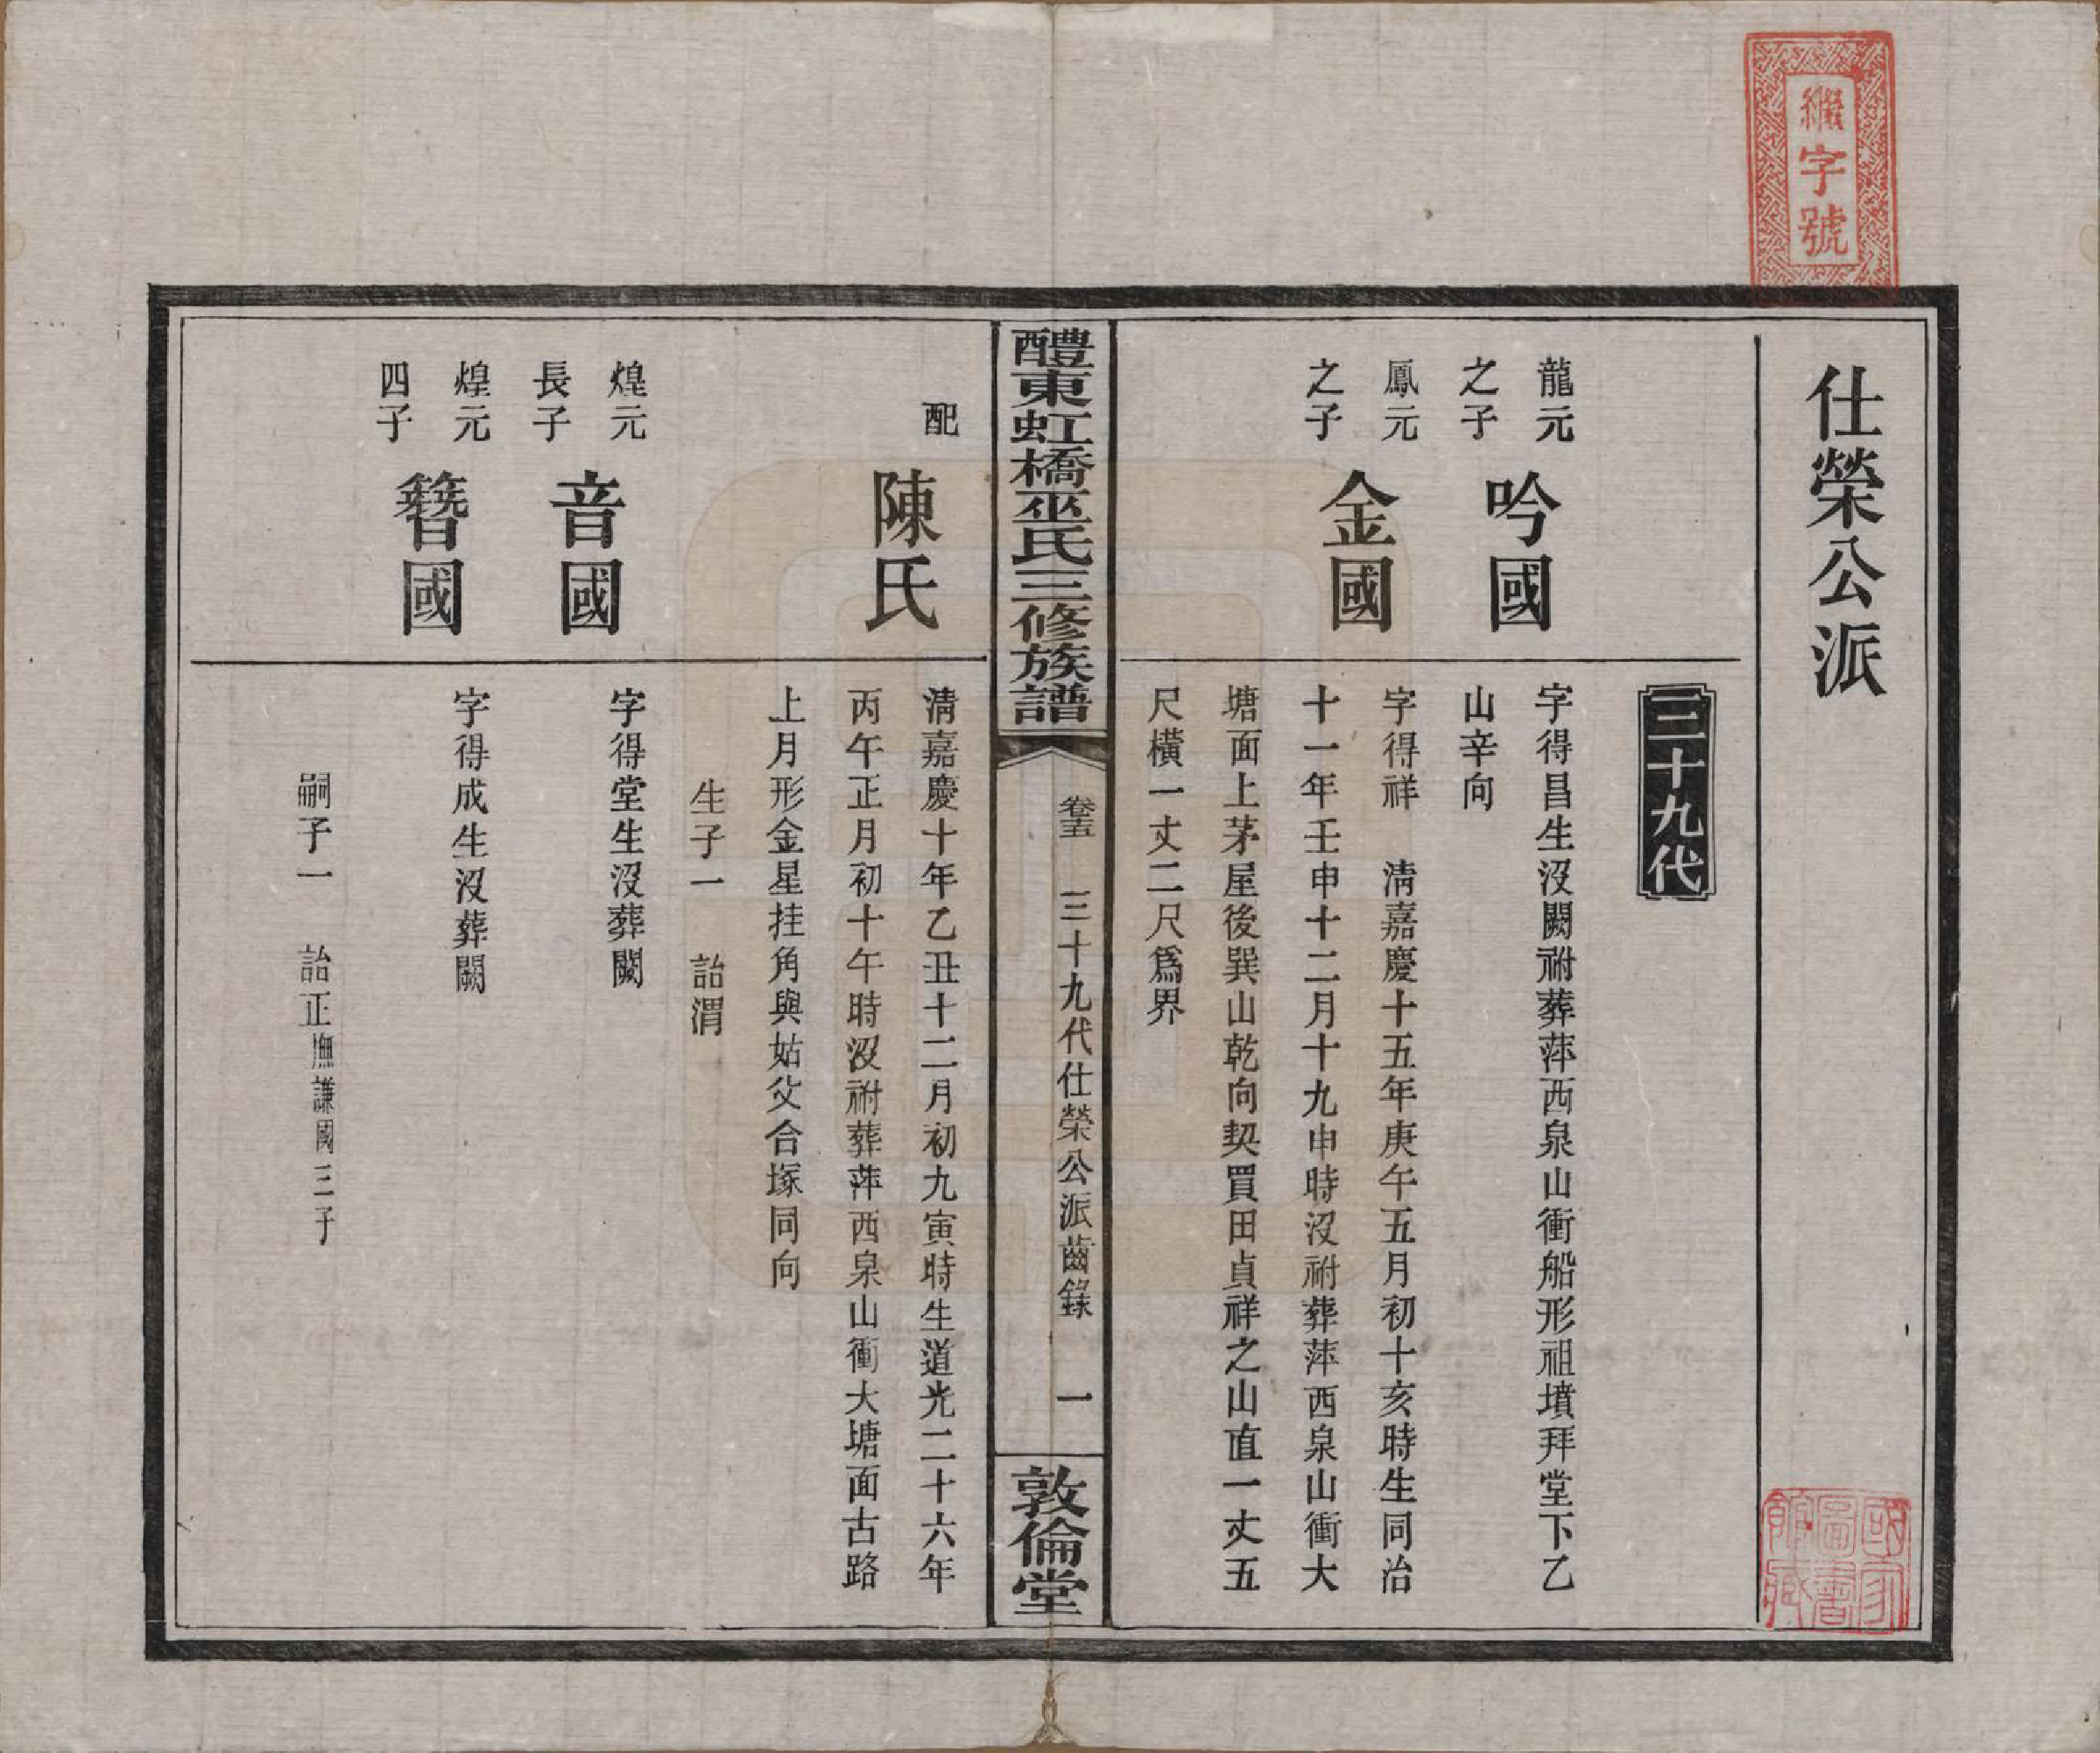 繼字號
仕榮公派
三十九代
龍元
之子
吟國
字得昌生沒闕祔葬萍西泉山衝船形祖墳拜堂下乙
山辛向
鳳元
之子
金國
字得祥　清嘉慶十五年庚午五月初十亥時生同治
十一年壬申十二月十九申時沒祔葬萍西泉山衝大
塘面上茅屋後巽山乾向契買田貞祥之山直一丈五
尺橫一丈二尺爲界
醴東虹橋巫氏三修族譜
卷五　三十九代仕榮公派齒錄　一
敦倫堂
配
陳氏
清嘉慶十年乙丑十二月初九寅時生道光二十六年
丙午正月初十午時沒祔葬萍西泉山衝大塘面古路
上月形金星挂角與姑父合塚同向
生子一　詒渭
煌元
長子
音國
字得堂生沒葬闕
煌元
四子
簪國
字得成生沒葬闕
嗣子一　詒正撫謙國三子
國家圖書館藏